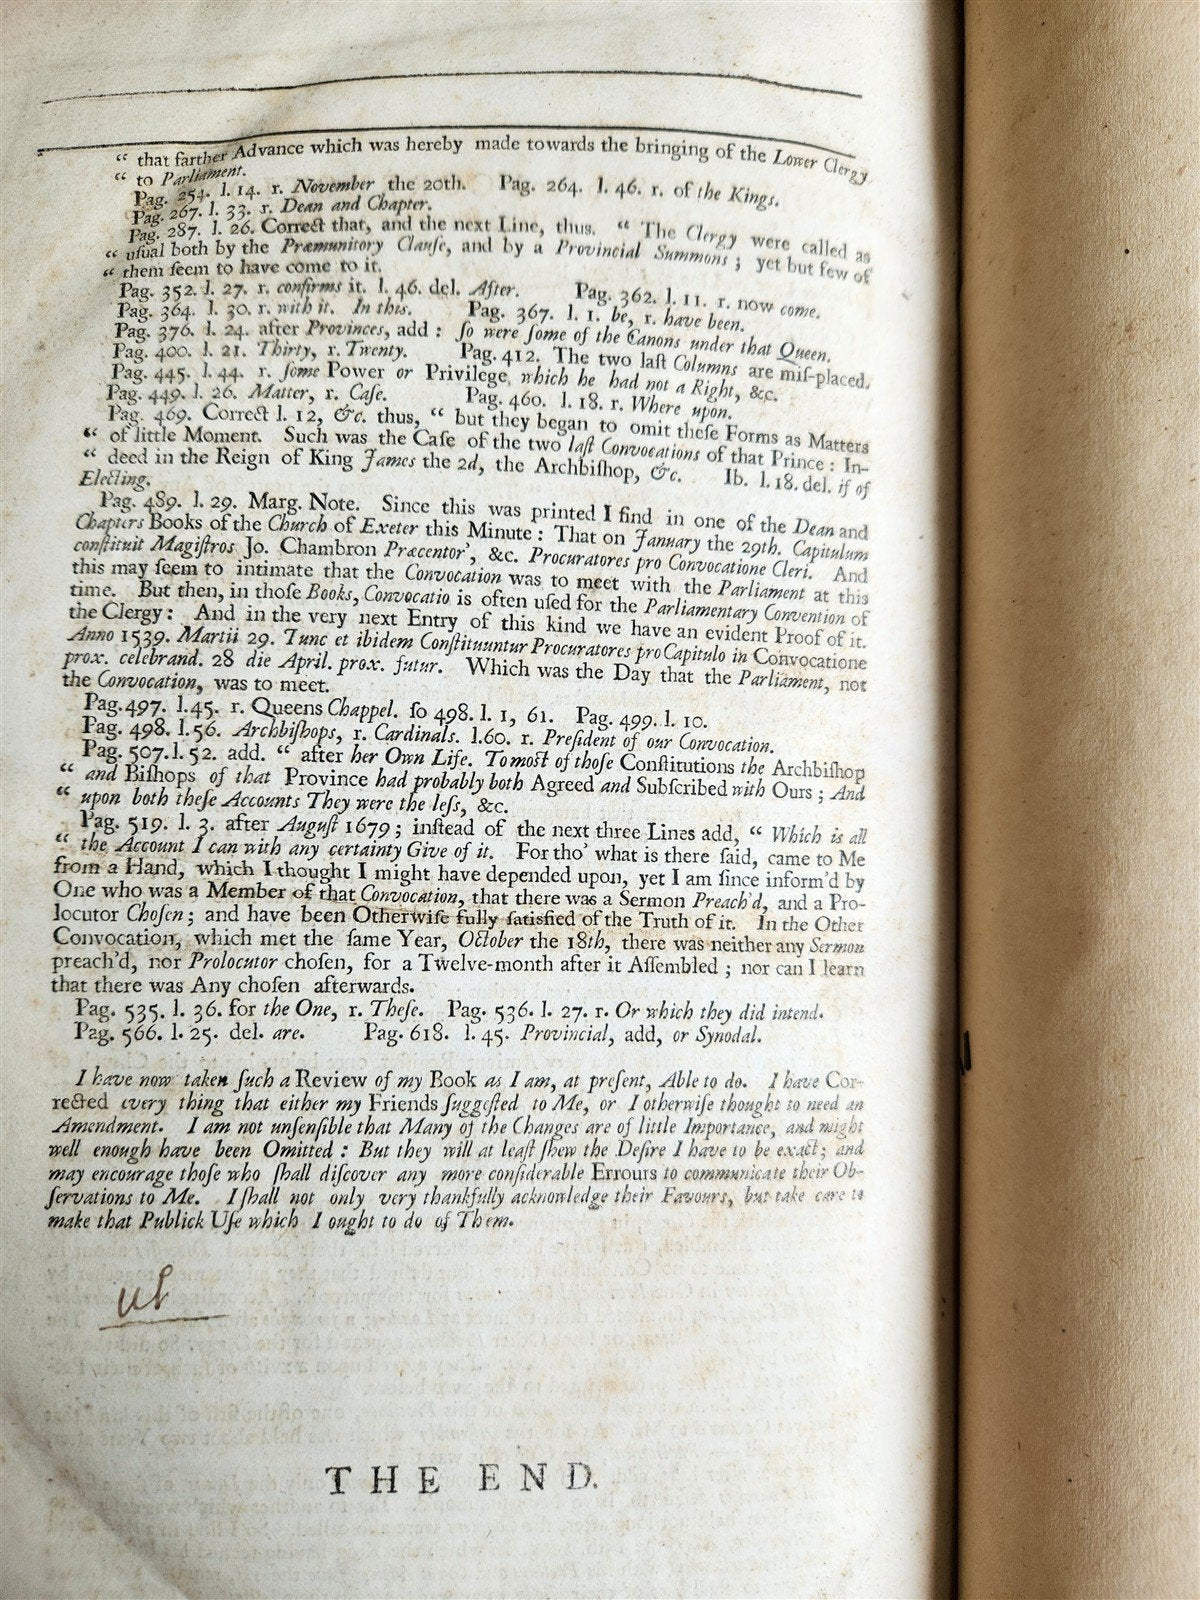 “ that farther Advance which was hereby made towards the bringing of the Lower Clergy
“ to Parliament.
Pag. 254. l. 14. r. November the 20th. Pag. 264. l. 46. r. of the Kings.
Pag. 267. l. 33. r. Dean and Chapter.
Pag. 287. l. 26. Correct that, and the next Line, thus. “ The Clergy were called as
“ uſual both by the Præmunitory Clauſe, and by a Provincial Summons ; yet but few of
“ them ſeem to have come to it.
Pag. 352. l. 27. r. confirms it. l. 46. del. After. Pag. 362. l. 11. r. now come.
Pag. 364. l. 30. r. with it. In this. Pag. 367. l. 1. be, r. have been.
Pag. 376. l. 24. after Provinces, add : ſo were ſome of the Canons under that Queen.
Pag. 400. l. 21. Thirty, r. Twenty. Pag. 412. The two laſt Columns are miſ-placed.
Pag. 445. l. 44. r. ſome Power or Privilege which he had not a Right, &c.
Pag. 449. l. 26. Matter, r. Caſe. Pag. 460. l. 18. r. Where upon.
Pag. 469. Correct l. 12, &c. thus, “ but they began to omit theſe Forms as Matters
“ of little Moment. Such was the Caſe of the two laſt Convocations of that Prince : In-
“ deed in the Reign of King James the 2d, the Archbiſhop, &c. Ib. l. 18. del. if of
Electing.
Pag. 489. l. 29. Marg. Note. Since this was printed I find in one of the Dean and
Chapters Books of the Church of Exeter this Minute : That on January the 29th. Capitulum
conſtituit Magiſtros Jo. Chambron Præcentor', &c. Procuratores pro Convocatione Cleri. And
this may ſeem to intimate that the Convocation was to meet with the Parliament at this
time. But then, in thoſe Books, Convocatio is often uſed for the Parliamentary Convention of
the Clergy : And in the very next Entry of this kind we have an evident Proof of it.
Anno 1539. Martii 29. Tunc et ibidem Conſtituuntur Procuratores pro Capitulo in Convocatione
prox. celebrand. 28 die April. prox. futur. Which was the Day that the Parliament, not
the Convocation, was to meet.
Pag. 497. l. 45. r. Queens Chappel. ſo 498. l. 1, 61. Pag. 499. l. 10.
Pag. 498. l. 56. Archbiſhops, r. Cardinals. l. 60. r. Preſident of our Convocation.
Pag. 507. l. 52. add. “ after her Own Life. To moſt of thoſe Conſtitutions the Archbiſhop
“ and Biſhops of that Province had probably both Agreed and Subſcribed with Ours ; And
“ upon both theſe Accounts They were the leſs, &c.
Pag. 519. l. 3. after Auguſt 1679 ; inſtead of the next three Lines add, “ Which is all
“ the Account I can with any certainty Give of it. For tho' what is there ſaid, came to Me
from a Hand, which I thought I might have depended upon, yet I am ſince inform'd by
One who was a Member of that Convocation, that there was a Sermon Preach'd, and a Pro-
locutor Choſen ; and have been Otherwiſe fully ſatisfied of the Truth of it. In the Other
Convocation, which met the ſame Year, October the 18th, there was neither any Sermon
preach'd, nor Prolocutor choſen, for a Twelve-month after it Aſſembled ; nor can I learn
that there was Any choſen afterwards.
Pag. 535. l. 36. for the One, r. Theſe. Pag. 536. l. 27. r. Or which they did intend.
Pag. 566. l. 25. del. are. Pag. 618. l. 45. Provincial, add, or Synodal.
I have now taken ſuch a Review of my Book as I am, at preſent, Able to do. I have Cor-
rected every thing that either my Friends ſuggeſted to Me, or I otherwiſe thought to need an
Amendment. I am not unſenſible that Many of the Changes are of little Importance, and might
well enough have been Omitted : But they will at leaſt ſhew the Deſire I have to be exact ; and
may encourage thoſe who ſhall diſcover any more conſiderable Errours to communicate their Ob-
ſervations to Me. I ſhall not only very thankfully acknowledge their Favours, but take care to
make that Publick Uſe which I ought to do of Them.
THE END.